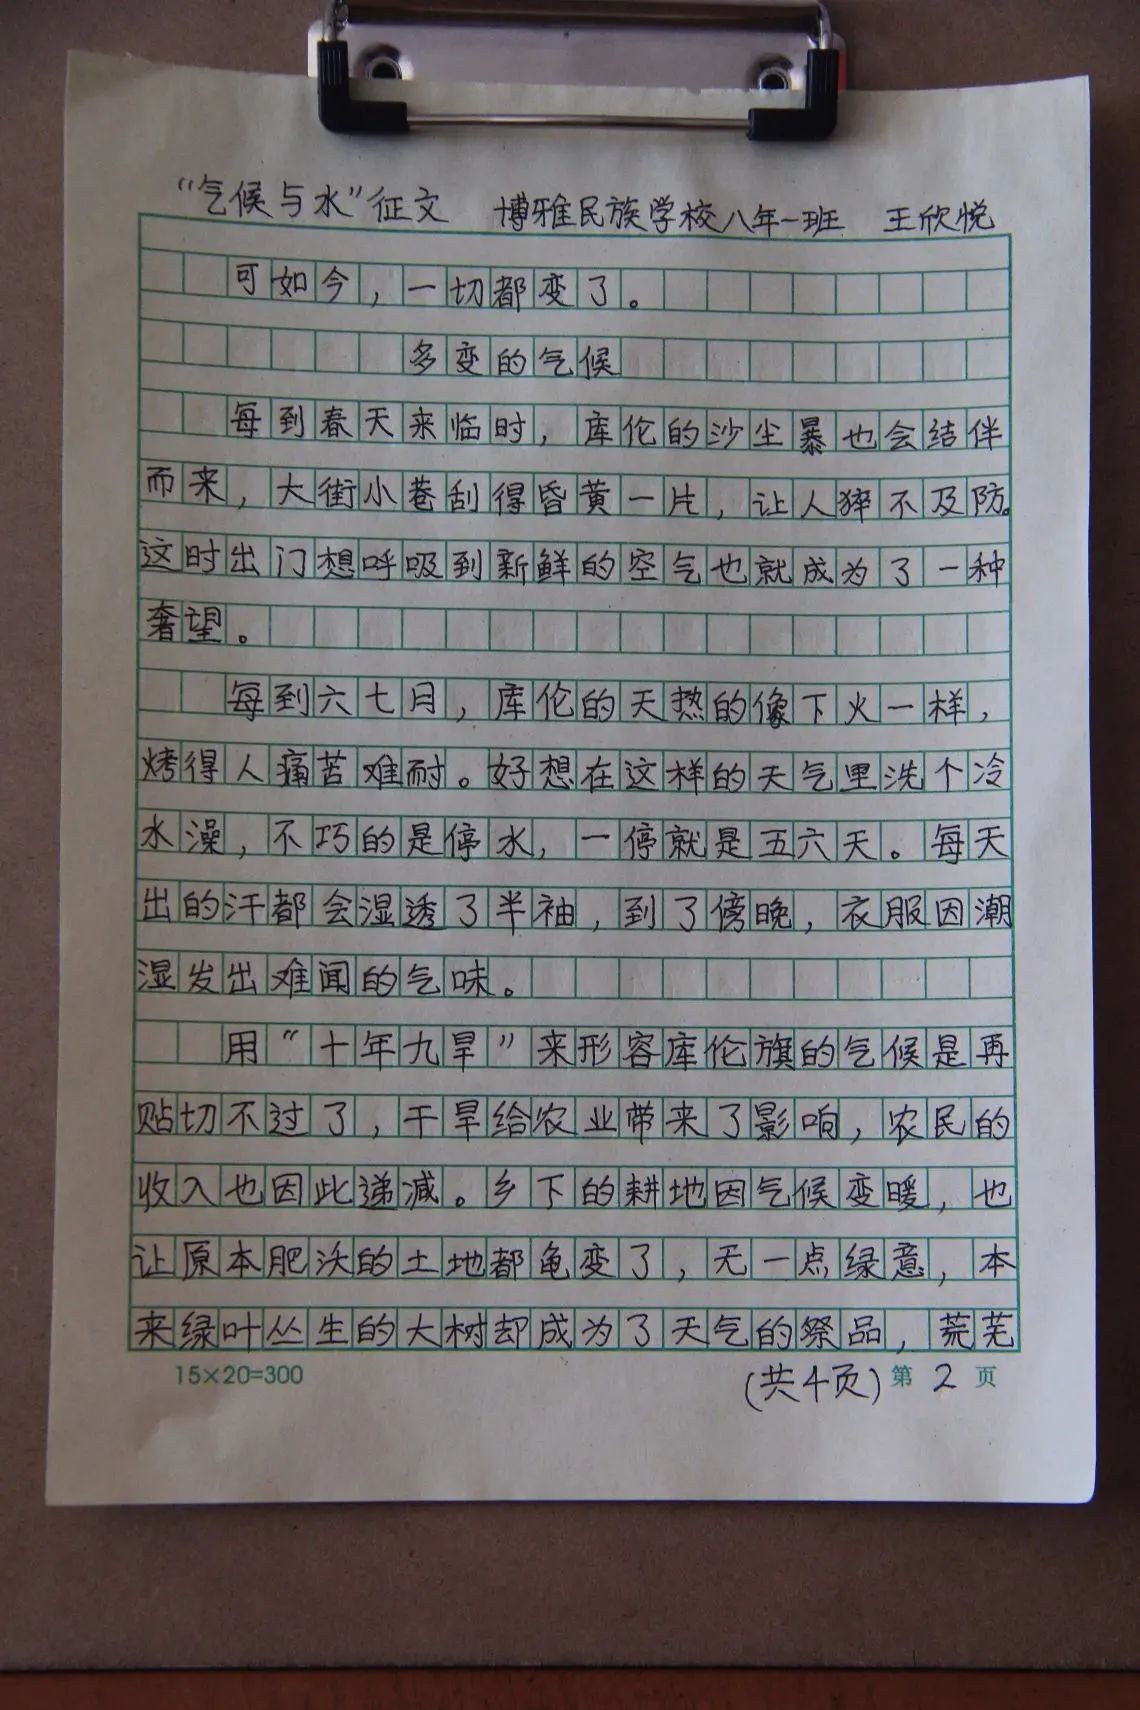 “气候与水”征文 博雅民族学校八年一班 王欣悦
可如今，一切都变了。
多变的气候
每到春天来临时，库伦的沙尘暴也会结伴
而来，大街小巷刮得昏黄一片，让人猝不及防。
这时出门想呼吸到新鲜的空气也就成为了一种
奢望。
每到六七月，库伦的天热的像下火一样，
烤得人痛苦难耐。好想在这样的天气里洗个冷
水澡，不巧的是停水，一停就是五六天。每天
出的汗都会湿透了半袖，到了傍晚，衣服因潮
湿发出难闻的气味。
用“十年九旱”来形容库伦旗的气候是再
贴切不过了，干旱给农业带来了影响，农民的
收入也因此递减。乡下的耕地因气候变暖，也
让原本肥沃的土地都龟变了，无一点绿意，本
来绿叶丛生的大树却成为了天气的祭品，荒芜
15×20=300 （共4页）第 2 页